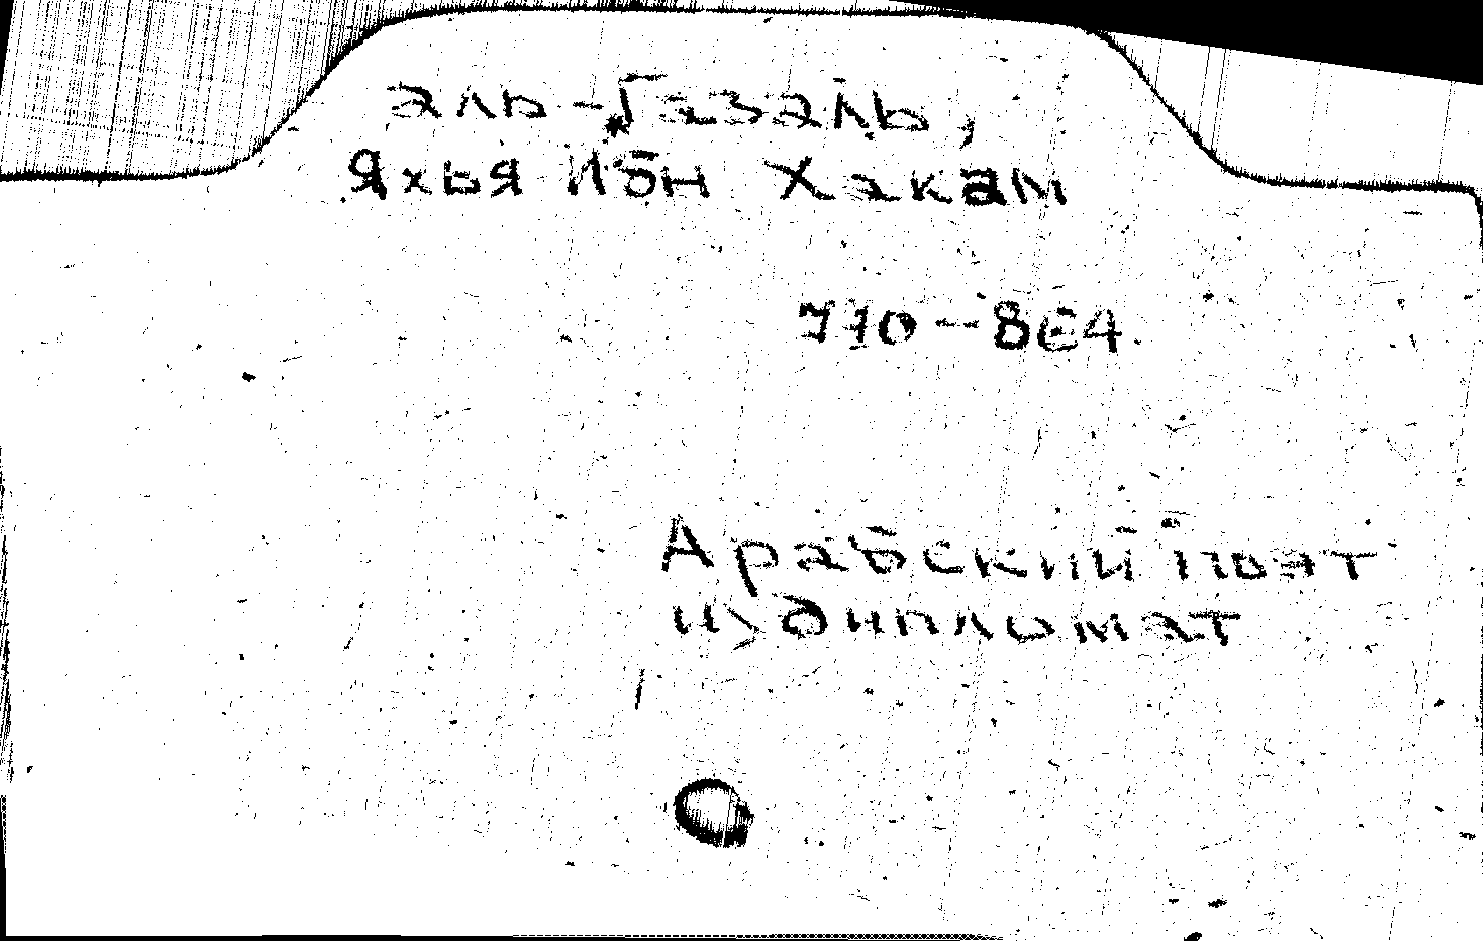 аль-Газаль,
Яхья Ибн Хакам
770-864.
Арабский поэт
и дипломат